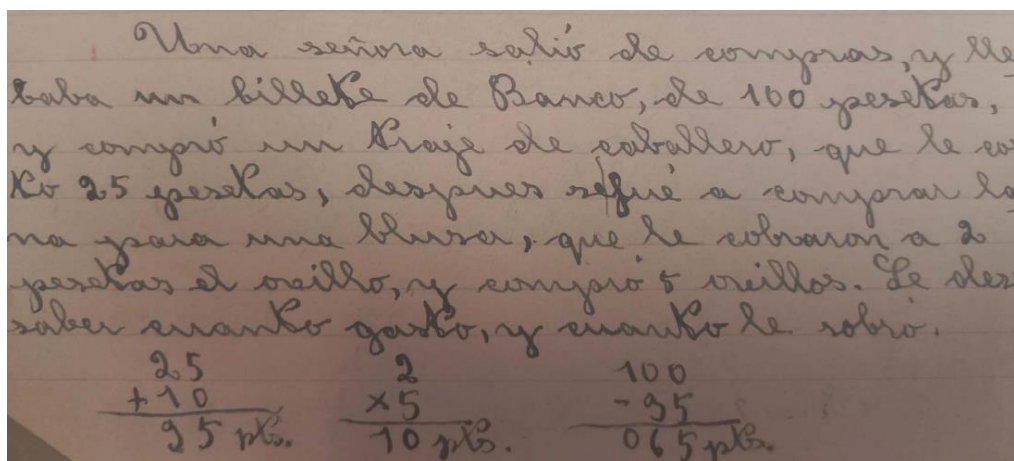 Una señora salió de compras, y lle
baba un billete de Banco, de 100 pesetas,
y compró un traje de caballero, que le cos
to 25 pesetas, despues se fué a comprar la
na para una blusa, que le cobraron a 2
pesetas el ovillo, y compró 5 ovillos. Se des
saber cuanto gasto, y cuanto le sobró.
25 2 100
+10 ×5 -35
35 pts. 10 pts. 065 pts.